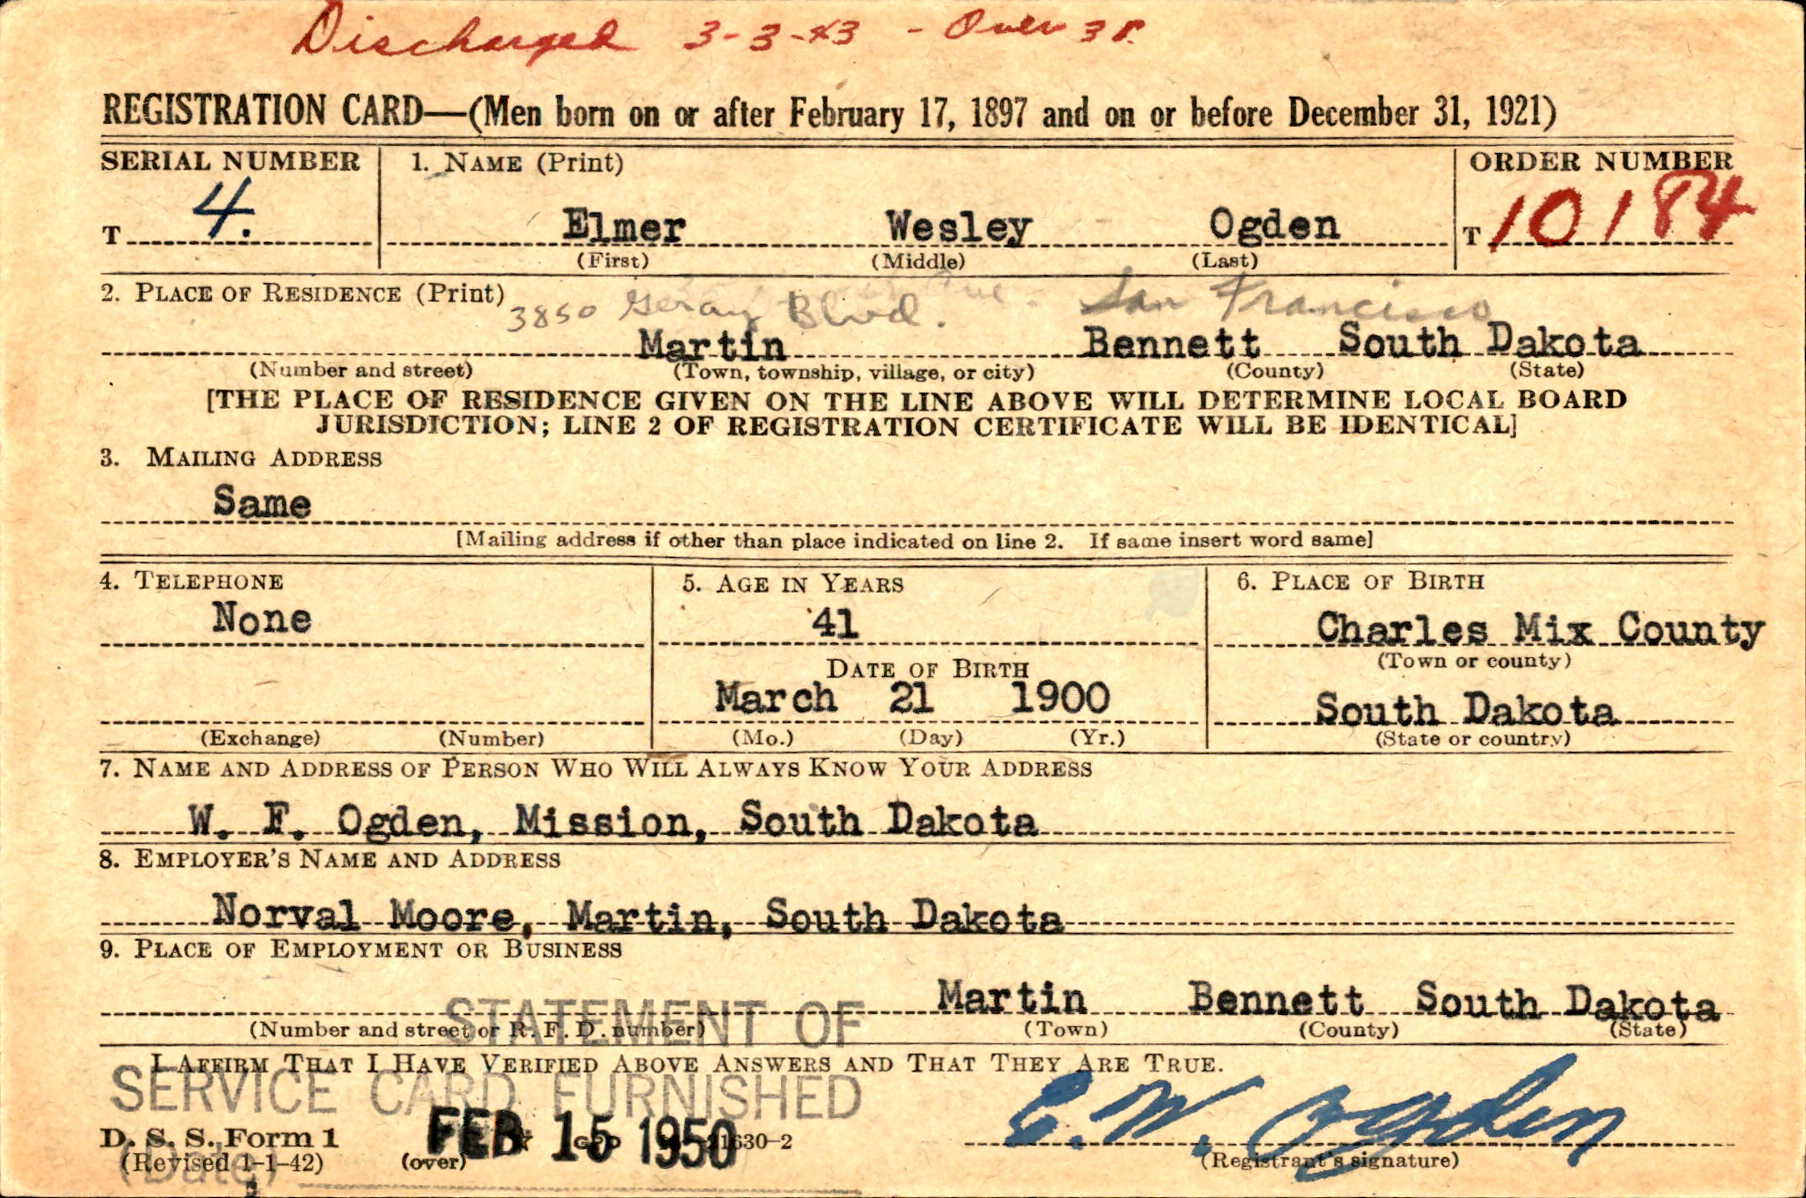 Discharged 3-3-43 - Over 38.
REGISTRATION CARD—(Men born on or after February 17, 1897 and on or before December 31, 1921)
SERIAL NUMBER
1. NAME (Print)
ORDER NUMBER
T 4.
Elmer Wesley Ogden
T 10184
(First) (Middle) (Last)
2. PLACE OF RESIDENCE (Print)
3850 Geray Blvd. Ave. San Francisco
Martin Bennett South Dakota
(Number and street) (Town, township, village, or city) (County) (State)
[THE PLACE OF RESIDENCE GIVEN ON THE LINE ABOVE WILL DETERMINE LOCAL BOARD
JURISDICTION; LINE 2 OF REGISTRATION CERTIFICATE WILL BE IDENTICAL]
3. MAILING ADDRESS
Same
[Mailing address if other than place indicated on line 2. If same insert word same]
4. TELEPHONE
None
(Exchange) (Number)
5. AGE IN YEARS
41
DATE OF BIRTH
March 21 1900
(Mo.) (Day) (Yr.)
6. PLACE OF BIRTH
Charles Mix County
(Town or county)
South Dakota
(State or country)
7. NAME AND ADDRESS OF PERSON WHO WILL ALWAYS KNOW YOUR ADDRESS
W. F. Ogden, Mission, South Dakota
8. EMPLOYER'S NAME AND ADDRESS
Norval Moore, Martin, South Dakota
9. PLACE OF EMPLOYMENT OR BUSINESS
Martin Bennett South Dakota
(Number and street or R. F. D. number) (Town) (County) (State)
STATEMENT OF
I AFFIRM THAT I HAVE VERIFIED ABOVE ANSWERS AND THAT THEY ARE TRUE.
SERVICE CARD FURNISHED
E. W. Ogden
D. S. S. Form 1
FEB 15 1950
GPO 21630-2
(Revised 1-1-42) (over) (Registrant's signature)
(Date)